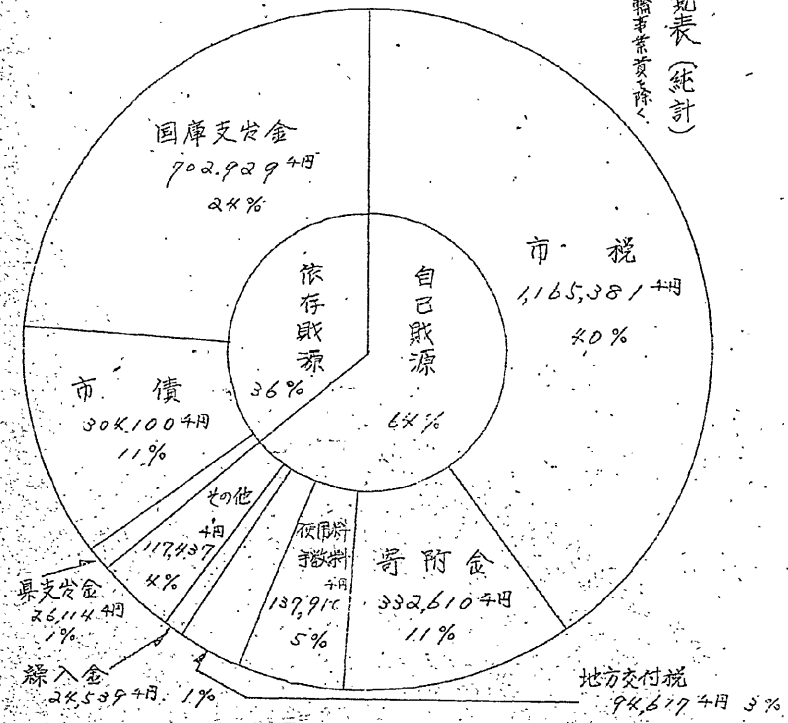 表(純計)
事業費を除く
国庫支出金
702,929千円
24%
市税
1,165,381千円
40%
依存財源
36%
自己財源
64%
市債
304,100千円
11%
その他
千円
117,437
4%
使用料
手数料
千円
5%
寄附金
332,610千円
11%
県支出金
26,114千円
1%
繰入金
24,539千円 1%
地方交付税
94,617千円 3%